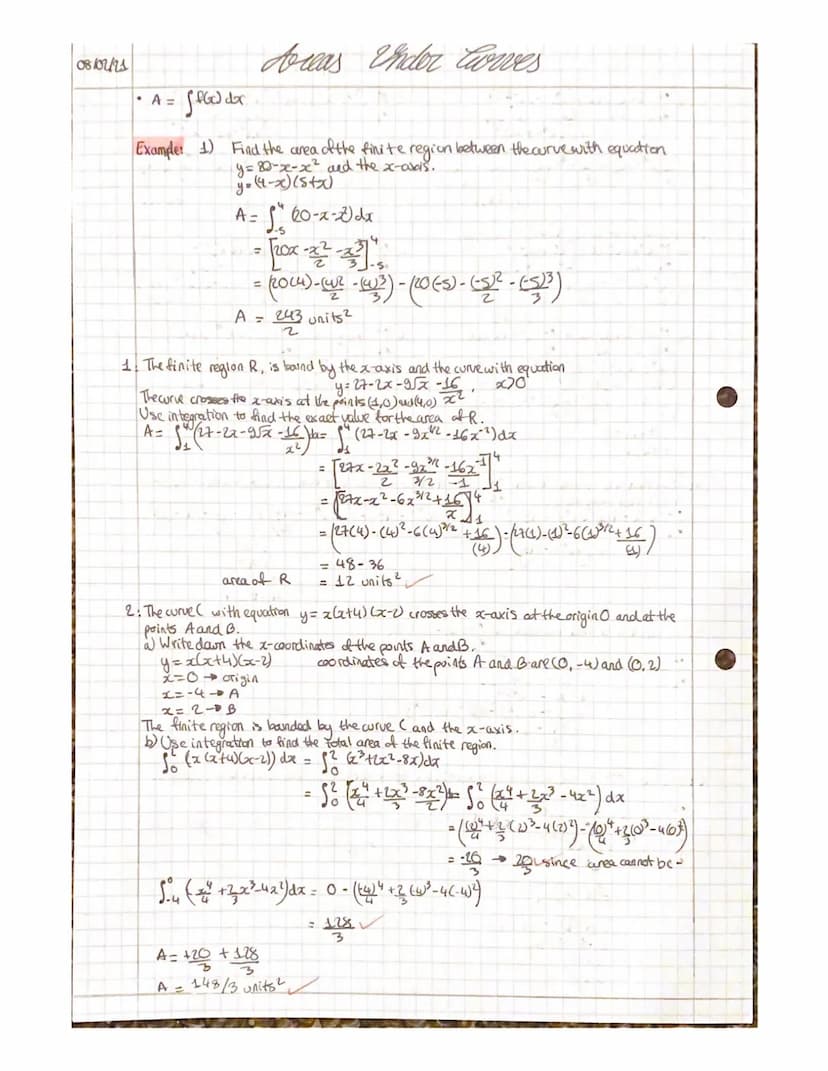 08/02/21
Areas Under Curves
• A = ∫f(x) dx
Example: 1) Find the area of the finite region between the curve with equation
y = 20-x-x² and the x-axis.
y=(4-x)(5+x)
A = ∫₋₅⁴ (20-x-x²)dx
= [20x - x²/2 - x³/3]₋₅⁴
= (20(4) - (4)²/2 - (4)³/3) - (20(-5) - (-5)²/2 - (-5)³/3)
A = 243/2 units²
1. The finite region R, is bound by the x-axis and the curve with equation
y = 27-2x-9√x - 16/x², x>0
The curve crosses the x-axis at the points (1,0) and (4,0)
Use integration to find the exact value for the area of R.
A = ∫₁⁴ (27-2x-9√x - 16/x²)dx = ∫₁⁴ (27-2x-9x^1/2 -16x⁻²)dx
= [27x - 2x²/2 - 9x^3/2/3/2 - 16x⁻¹/-1]₁⁴
= [27x-x²-6x^3/2 + 16/x]₁⁴
= (27(4) - (4)² - 6(4)^3/2 + 16/(4)) - (27(1) - (1)² - 6(1)^3/2 + 16/(1))
= 48 - 36
area of R = 12 units² ✓
2. The curve C with equation y = x(x+4)(x-2) crosses the x-axis at the origin O and at the
points A and B.
a) Write down the x-coordinates of the points A and B.
y = x(x+4)(x-2) coordinates of the points A and B are (0, -4) and (0, 2)
x=0 → origin
x = -4 → A
x = 2 → B
The finite region is bounded by the curve C and the x-axis.
b) Use integration to find the total area of the finite region.
∫₀² (x(x+4)(x-2)) dx = ∫₀² (x³+2x²-8x)dx
= ∫₀² (x⁴/4 + 2x³/3 - 8x²/2)dx = ∫₀² (x⁴/4 + 2x³/3 - 4x²) dx
= ((2)⁴/4 + 2/3 (2)³ - 4(2)²) - ((0)⁴/4 + 2/3(0)³ - 4(0)²)
= -20/3 → 20/3 since area cannot be -
∫₋₄⁰ (x⁴/4 + 2/3 x³ - 4x²)dx = 0 - ((-4)⁴/4 + 2/3 (-4)³ - 4(-4)²)
= 128/3 ✓
A = +20/3 + 128/3
A = 148/3 units² ✓